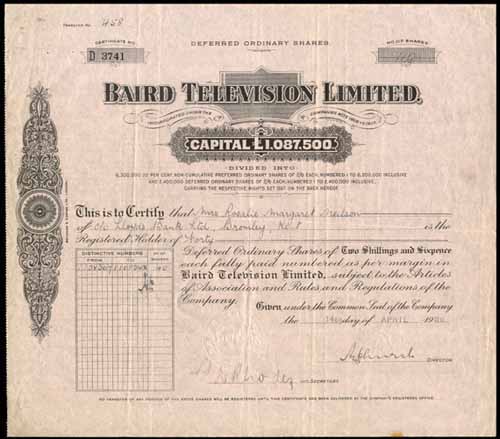 TRANSFER No. 458
CERTIFICATE NO.
D 3741
DEFERRED ORDINARY SHARES.
NO. OF SHARES
BAIRD TELEVISION LIMITED.
INCORPORATED UNDER THE COMPANIES ACTS
CAPITAL £1,087,500.
DIVIDED INTO
PER CENT. NON-CUMULATIVE PREFERRED ORDINARY SHARES OF 2/6 EACH, NUMBERED 1 TO 6,300,000 INCLUSIVE
AND 2,400,000 DEFERRED ORDINARY SHARES OF 2/6 EACH, NUMBERED 1 TO 2,400,000 INCLUSIVE,
CARRYING THE RESPECTIVE RIGHTS SET OUT ON THE BACK HEREOF
This is to Certify that Mrs Rosalie Margaret
of c/o Lloyds Bank Ltd, Bromley, Kent is the
Registered Holder of Forty
Deferred Ordinary Shares of Two Shillings and Sixpence
each fully paid numbered as per margin in
Baird Television Limited, subject to the Articles
of Association and Rules and Regulations of the
Company.
DISTINCTIVE NUMBERS
FROM TO
Given under the Common Seal of the Company
the day of APRIL
DIRECTOR
SECRETARY
NO TRANSFER OF ANY PORTION OF THE ABOVE SHARES WILL BE REGISTERED UNTIL THIS CERTIFICATE HAS BEEN DELIVERED AT THE COMPANY'S REGISTERED OFFICE.